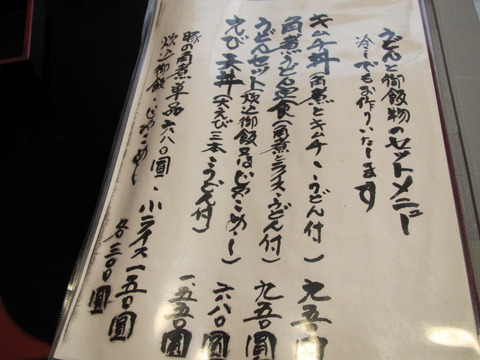 うどんと御飯物のセットメニュー
冷しでもお作りいたします
キムチ丼(角煮とキムチ・うどん付) 九五〇圓
角煮うどん定食(角煮とライス・うどん付) 九五〇圓
うどんセット(炊込御飯又はじゃこめし) 六八〇圓
えび天丼(大えび三本・うどん付) 一、五五〇圓
豚の角煮単品六八〇圓・小ライス一五〇圓
炊込御飯・じゃこめし 各三〇〇圓